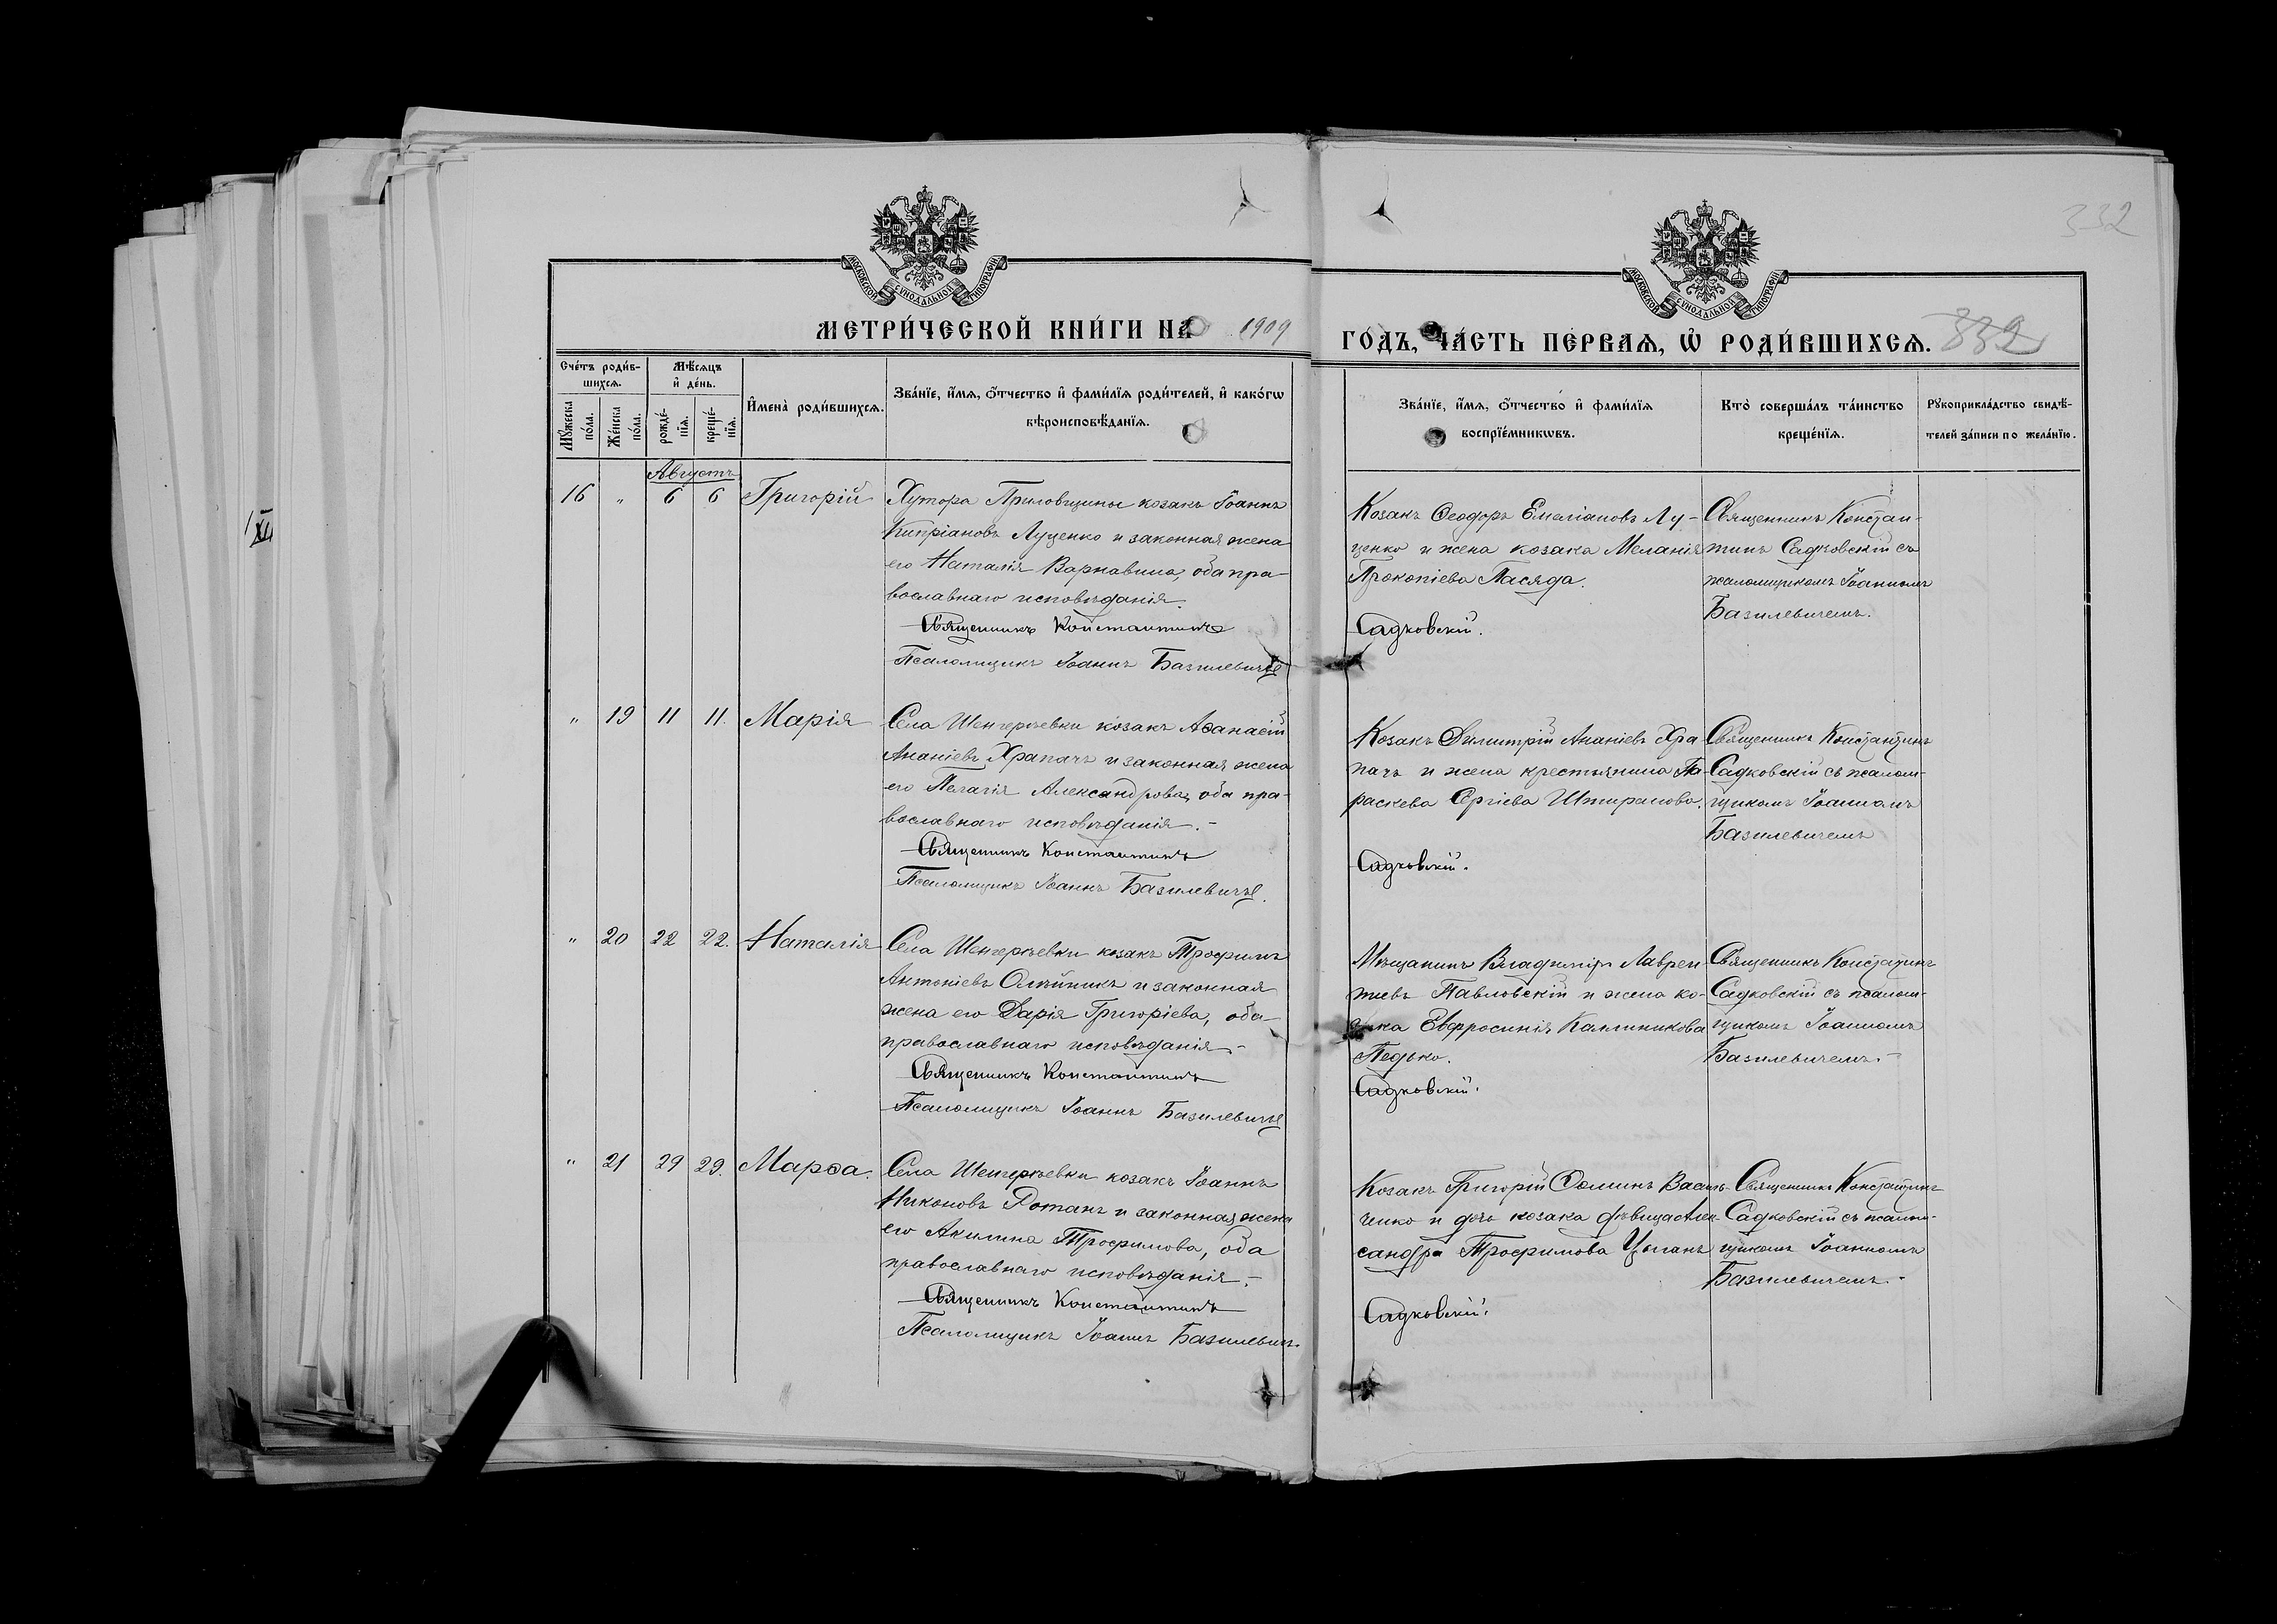 332
МОСКОВСКОЙ СѴНОДАЛЬНОЙ ТИПОГРАФІИ
МОСКОВСКОЙ СѴНОДАЛЬНОЙ ТИПОГРАФІИ
МЕТРИ́ЧЕСКОЙ КНИ́ГИ НА 1909
ГО́ДЪ, ЧА́СТЬ ПЕ́РВАЯ, Ѡ РОДИ́ВШИХСЯ. 332
Сче́тъ роди́в-
шихся.
Мꙋ́жеска по́ла.
Же́нска по́ла.
Мѣ́сяцъ
и де́нь.
рожде́-нїя.
креще́-нїя.
И҆мена̀ роди́вшихся.
Зва́нїе, и҆́мя, ѻ҆́тчество и҆ фами́лїя роди́телей, и҆ како́гѡ
вѣроисповѣ́данїя.
Зва́нїе, и҆́мя, ѻ҆́тчество и҆ фами́лїя
воспрїе́мникѡвъ.
Кто̀ соверша́лъ та́инство
креще́нїя.
Рꙋкоприкла́дство свидѣ́-
телей за́писи по жела́нїю.
Августъ
16 " 6 6 Григорій
Хутора Приловщины козакъ Іоаннъ
Кипріановъ Луценко и законная жена
его Наталія Варнавина, оба пра-
вославнаго исповѣданія.
Священникъ Константинъ
Псаломщикъ Іоаннъ Базилевичъ
Козакъ Ѳеодоръ Емеліановъ Лу-
ценко и жена козака Меланія
Прокопіева Пасяда.
Садковскій.
Священникъ Констан-
тинъ Садковскій съ
псаломщикомъ Іоанномъ
Базилевичемъ.
" 19 11 11. Марія
Села Шенгерѣевки козакъ Аѳанасій
Ананіевъ Храпачъ и законная жена
его Пелагія Александрова, оба пра-
вославнаго исповѣданія.-
Священникъ Константинъ
Псаломщикъ Іоаннъ Базилевичъ.
Козакъ Димитрій Ананіевъ Хра-
пачъ и жена крестьянина Па-
раскева Сергіева Штирапова.
Садковскій.
Священникъ Константинъ
Садковскій съ псалом-
щикомъ Іоанномъ
Базилевичемъ
" 20 22 22. Наталія
Села Шенгерѣевки козакъ Трофимъ
Антоніевъ Олѣйникъ и законная
жена его Дарія Григоріева, оба
православнаго исповѣданія.-
Священникъ Константинъ
Псаломщикъ Іоаннъ Базилевичъ
Мѣщанинъ Владиміръ Лаврен-
тіевъ Павловскій и жена ко-
зака Евфросинія Каллиникова
Педько.
Садковскій.
Священникъ Константинъ
Садковскій съ псалом-
щикомъ Іоанномъ
Базилевичемъ.-
" 21 29 29. Марѳа.
Села Шенгерѣевки козакъ Іоаннъ
Никоновъ Ротань и законная жена
его Акилина Трофимова, оба
православнаго исповѣданія.-
Священникъ Константинъ
Псаломщикъ Іоаннъ Базилевичъ.
Козакъ Григорій Ѳоминъ Василь-
ченко и дочь козака дѣвица Алек-
сандра Трофимова Цыганъ
Садковскій.
Священникъ Константинъ
Садковскій съ псалом-
щикомъ Іоанномъ
Базилевичемъ.-